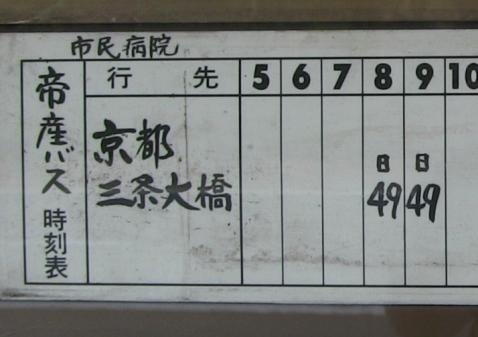 市民病院
帝産バス 時刻表
行 先 5 6 7 8 9 10
京都
三条大橋
日 日
49 49